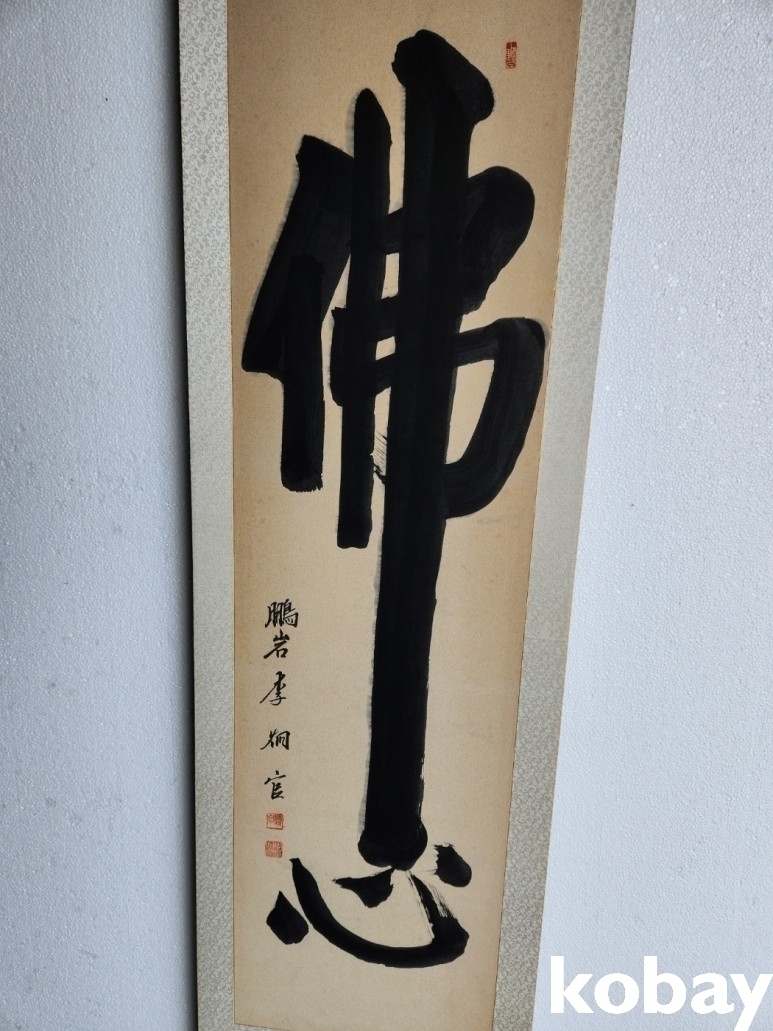 佛心
鵬岩李炯官
kobay